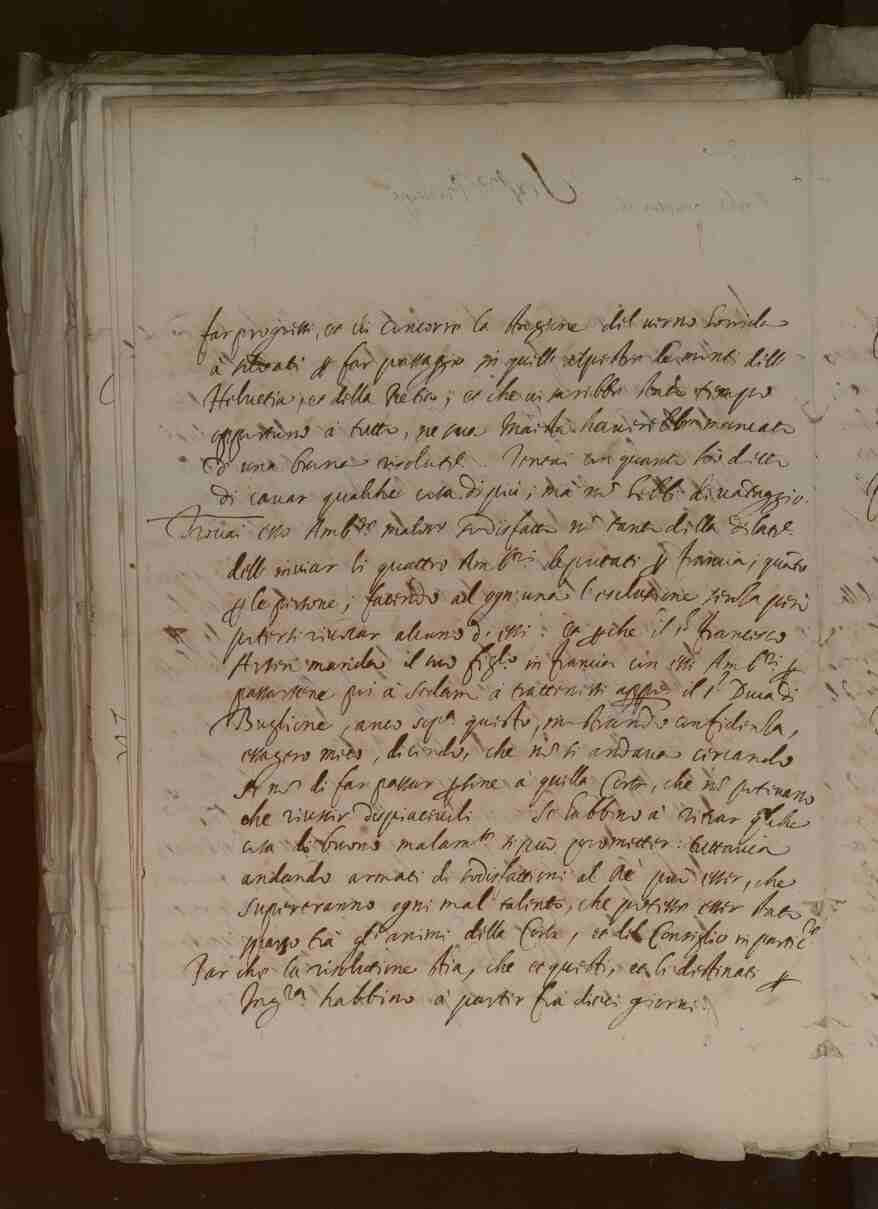 far progressi, et vi concorre la stagione del verno horrida
à soldati per far passaggio in quelle alpestre monti dell'
Helvetia, et della Retia; et che vi sarebbe stato tempo
opportuno à tutto, ne sua Maestà haverebbe mancato
d'una buona resolutne. Tentai con quanto hò detto
di cavar qualche cosa di più; mà nò hebbi di vataggio.
Trovai esso Ambre malamte sodisfatto nò tanto della dilatne
dell' inviar li quattro Ambri deputati per Francia; quato
per le persone; facendo ad ogni una l'esclusione senza però
poter si riuscir alcuno di essi: et perche il sr Francesco
Arsen manda il suo figlo in Francia con essi Ambri per
passarsene poi à Sedam à trattenersi appo il sr Duca di
Buglione, anco sopra questo, mostrando confidenza,
essagerò meco, dicendo, che nò si andava cercando
se nò di far passar persone à quella Corte, che nò potevano
che riuscir dispiacevoli. Se habbino à ritrar qlche
cosa di buono malamte si può prometter: tuttavia
andando armati di sodisfattioni al Rè può esser, che
supereranno ogni mal talento, che potesse esser stato
preso trà gl'animi della Corte, et del Consiglio in particre
Par che la risolutione stia, che et questi, et li destinati per
Ingra habbino à partir frà dieci giorni.